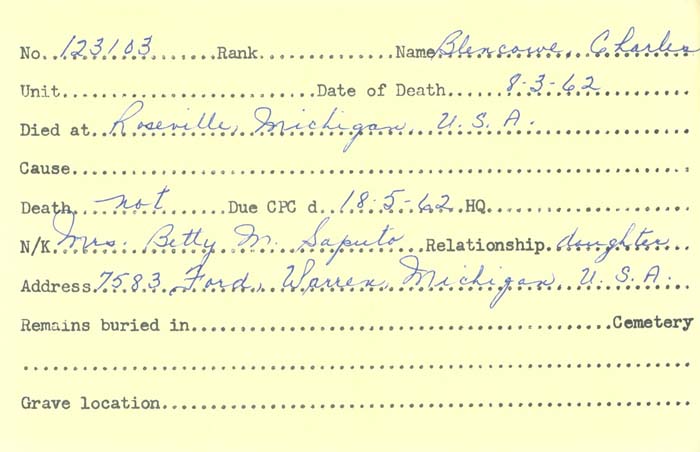 No. 123103 Rank Name Blencowe, Charles
Unit Date of Death 8-3-62
Died at Roseville, Michigan, U.S.A.
Cause
Death not Due CPC d. 18-5-62 HQ
N/K Mrs. Betty M. Saputo Relationship daughter
Address 7583 Ford, Warren, Michigan U.S.A.
Remains buried in Cemetery
Grave location